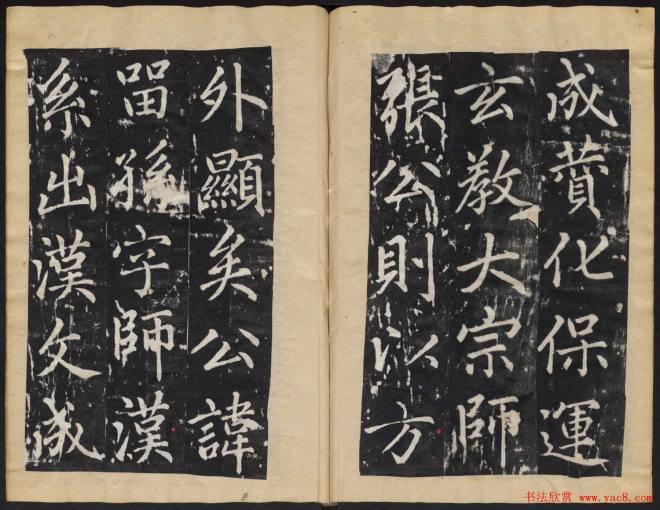 成賛化保運
玄教大宗師
張公則以方
外顯矣公諱
留孫字師漢
系出漢文成
书法欣赏 www.yac8.com